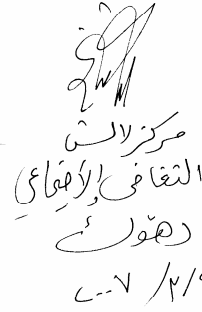 مركز لالش
الثقافي والاجتماعي
دهوك